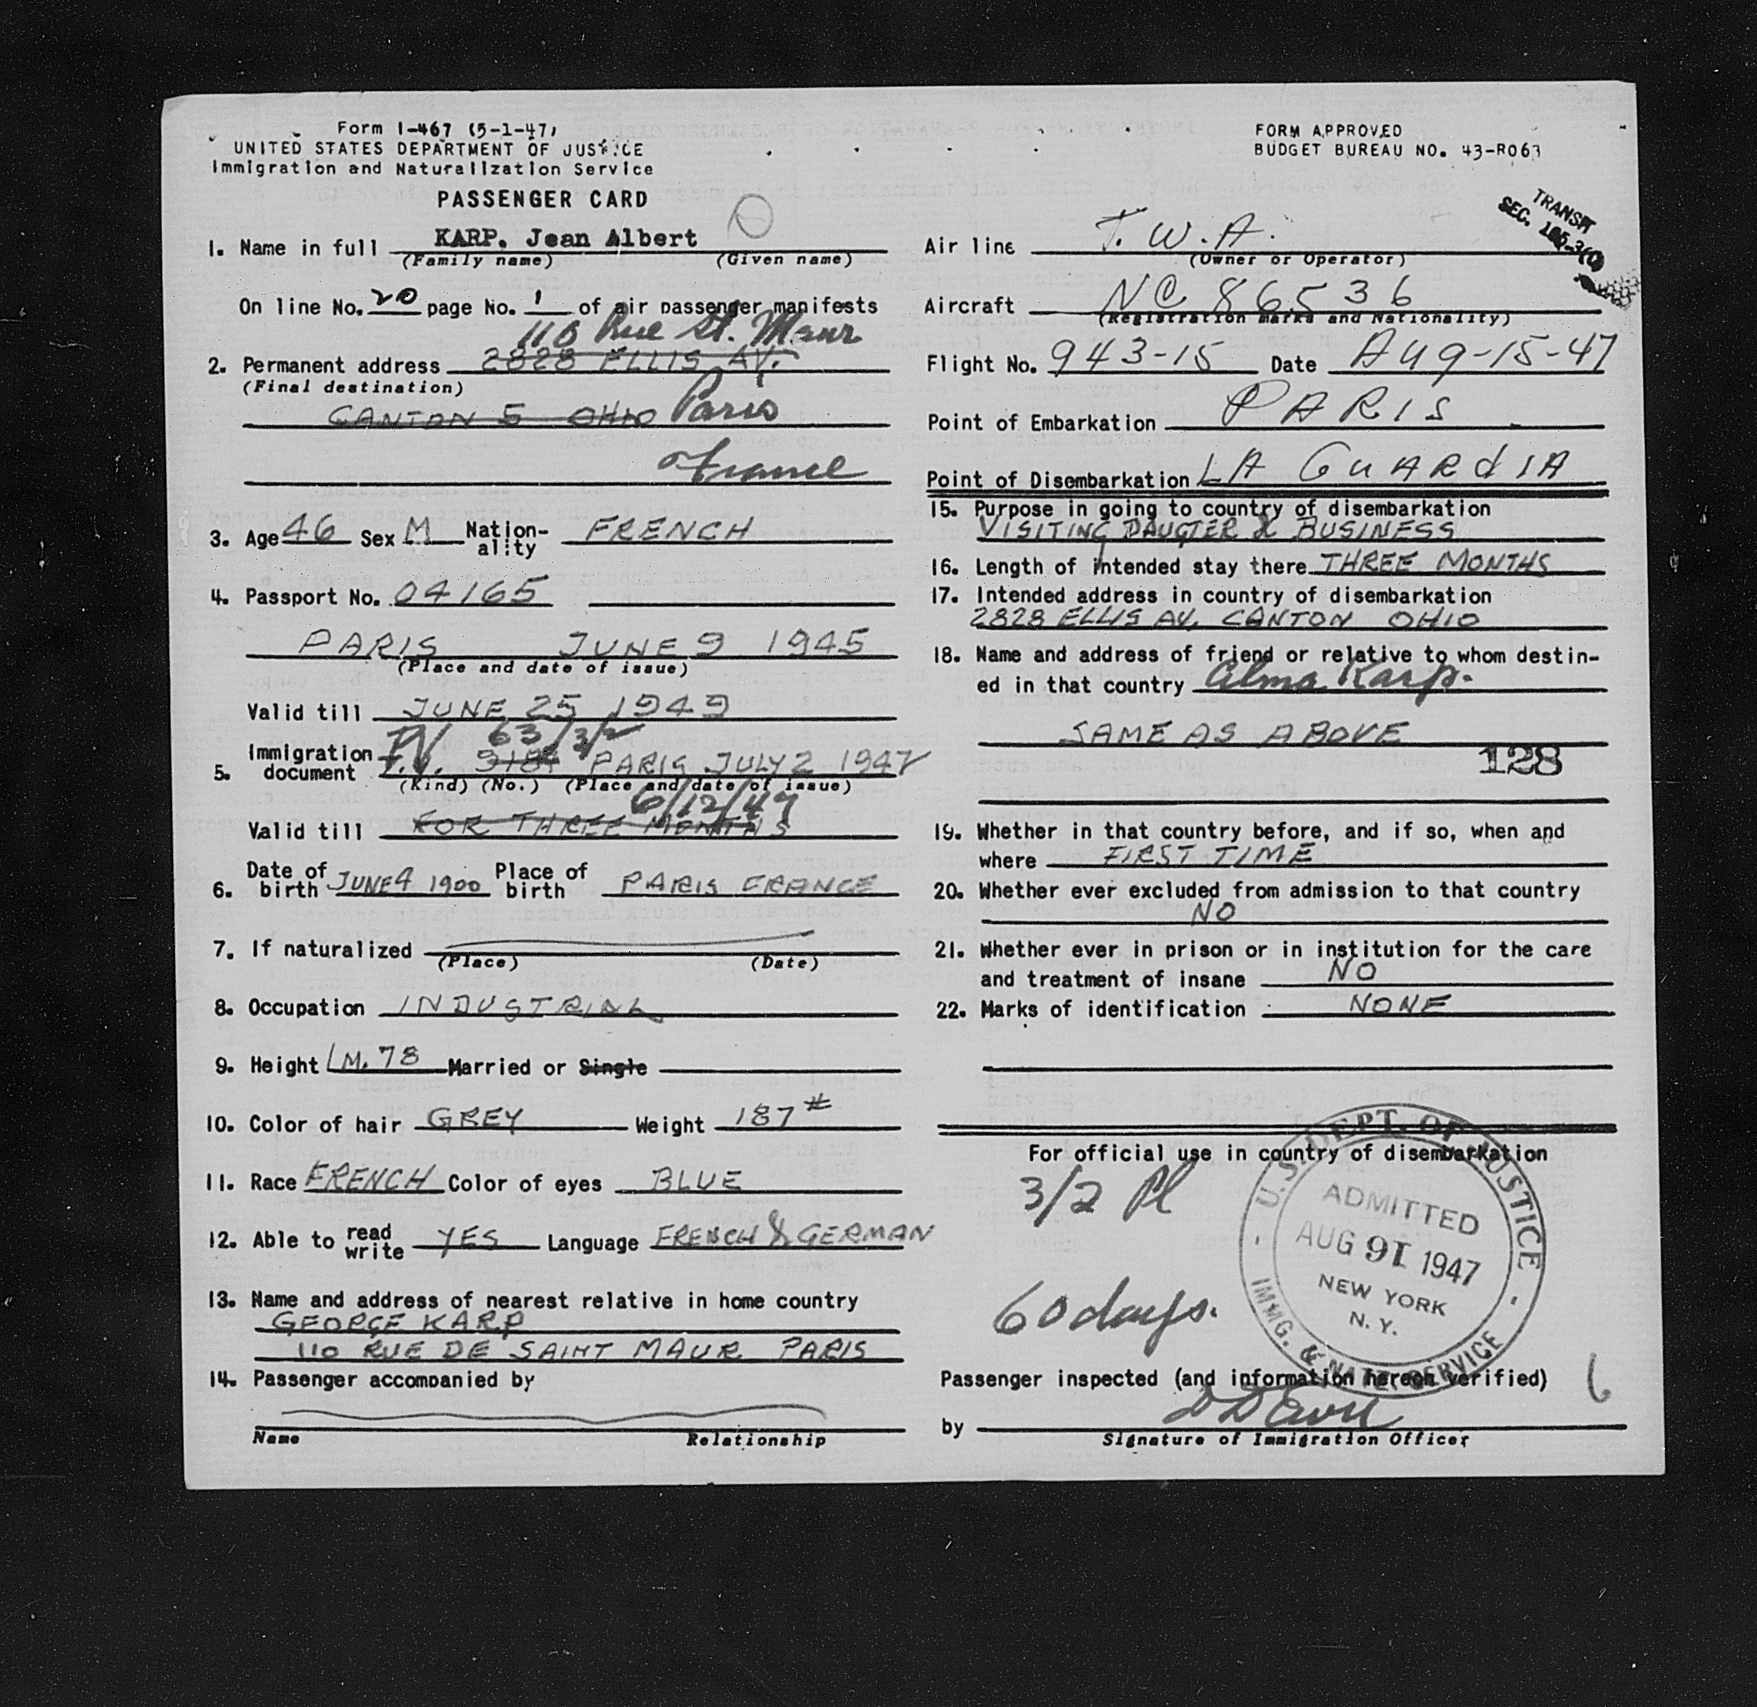 Form I-467 (5-1-47)
UNITED STATES DEPARTMENT OF JUSTICE
Immigration and Naturalization Service
PASSENGER CARD
1. Name in full KARP, Jean Albert
(Family name) (Given name)
On line No. 20 page No. 1 of air passenger manifests
110 Rue St. Maur
2. Permanent address 2828 ELLIS AV.
(Final destination)
CANTON 5 OHIO Paris
France
3. Age 46 Sex M Nation-ality FRENCH
4. Passport No. 04165
PARIS JUNE 9 1945
(Place and date of issue)
Valid till JUNE 25 1949
63/3/2
5. Immigration document T.V. PARIS JULY 2 1947
(Kind) (No.) (Place and date of issue)
6/12/47
Valid till FOR THREE MONTHS
6. Date of birth JUNE 4 1900 Place of birth PARIS FRANCE
7. If naturalized
(Place) (Date)
8. Occupation INDUSTRIAL
9. Height 1M.78 Married or Single
10. Color of hair GREY Weight 187#
11. Race FRENCH Color of eyes BLUE
12. Able to read write YES Language FRENCH & GERMAN
13. Name and address of nearest relative in home country
GEORGE KARP
110 RUE DE SAINT MAUR PARIS
14. Passenger accompanied by
Name Relationship
FORM APPROVED
BUDGET BUREAU NO. 43-R063
TRANSIT
SEC.
Air line T.W.A.
(Owner or Operator)
Aircraft NC 86536
(Registration marks and Nationality)
Flight No. 943-15 Date Aug-15-47
Point of Embarkation PARIS
Point of Disembarkation LA GUARdIA
15. Purpose in going to country of disembarkation
VISITING DAUGTER & BUSINESS
16. Length of intended stay there THREE MONTHS
17. Intended address in country of disembarkation
2828 ELLIS AV. CANTON OHIO
18. Name and address of friend or relative to whom destin-
ed in that country Alma Karp.
SAME AS ABOVE
128
19. Whether in that country before, and if so, when and
where FIRST TIME
20. Whether ever excluded from admission to that country
NO
21. Whether ever in prison or in institution for the care
and treatment of insane NO
22. Marks of identification NONE
For official use in country of disembarkation
3/2
60 days.
U.S. DEPT. OF JUSTICE
ADMITTED
AUG 1947
NEW YORK
N.Y.
IMMG. & NATZ. SERVICE
Passenger inspected (and information hereon verified)
6
by
Signature of Immigration Officer